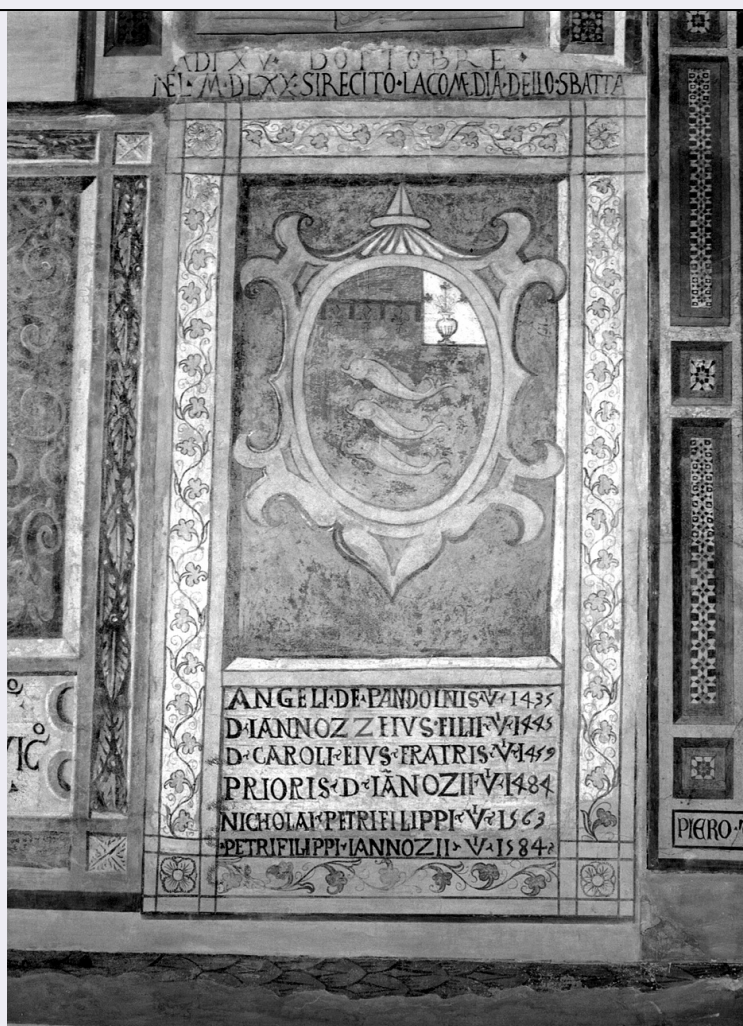 ADI XV DOTTOBRE
NEL·M·DLXX·SIRECITO·LACOMEDIA·DELLO·SBATTA
ANGELI·DE·PANDOINIS·V·1435
D·IANNOZZ EIVS·FILII·V·1445
D·CAROLI·EIVS·FRATRIS·V·1459
PRIORIS·D·IĀNOZII·V·1484
NICHOLAI·PETRIFILIPPI·V·1563
·PETRIFILIPPI·IANNOZII·V·1584
PIERO